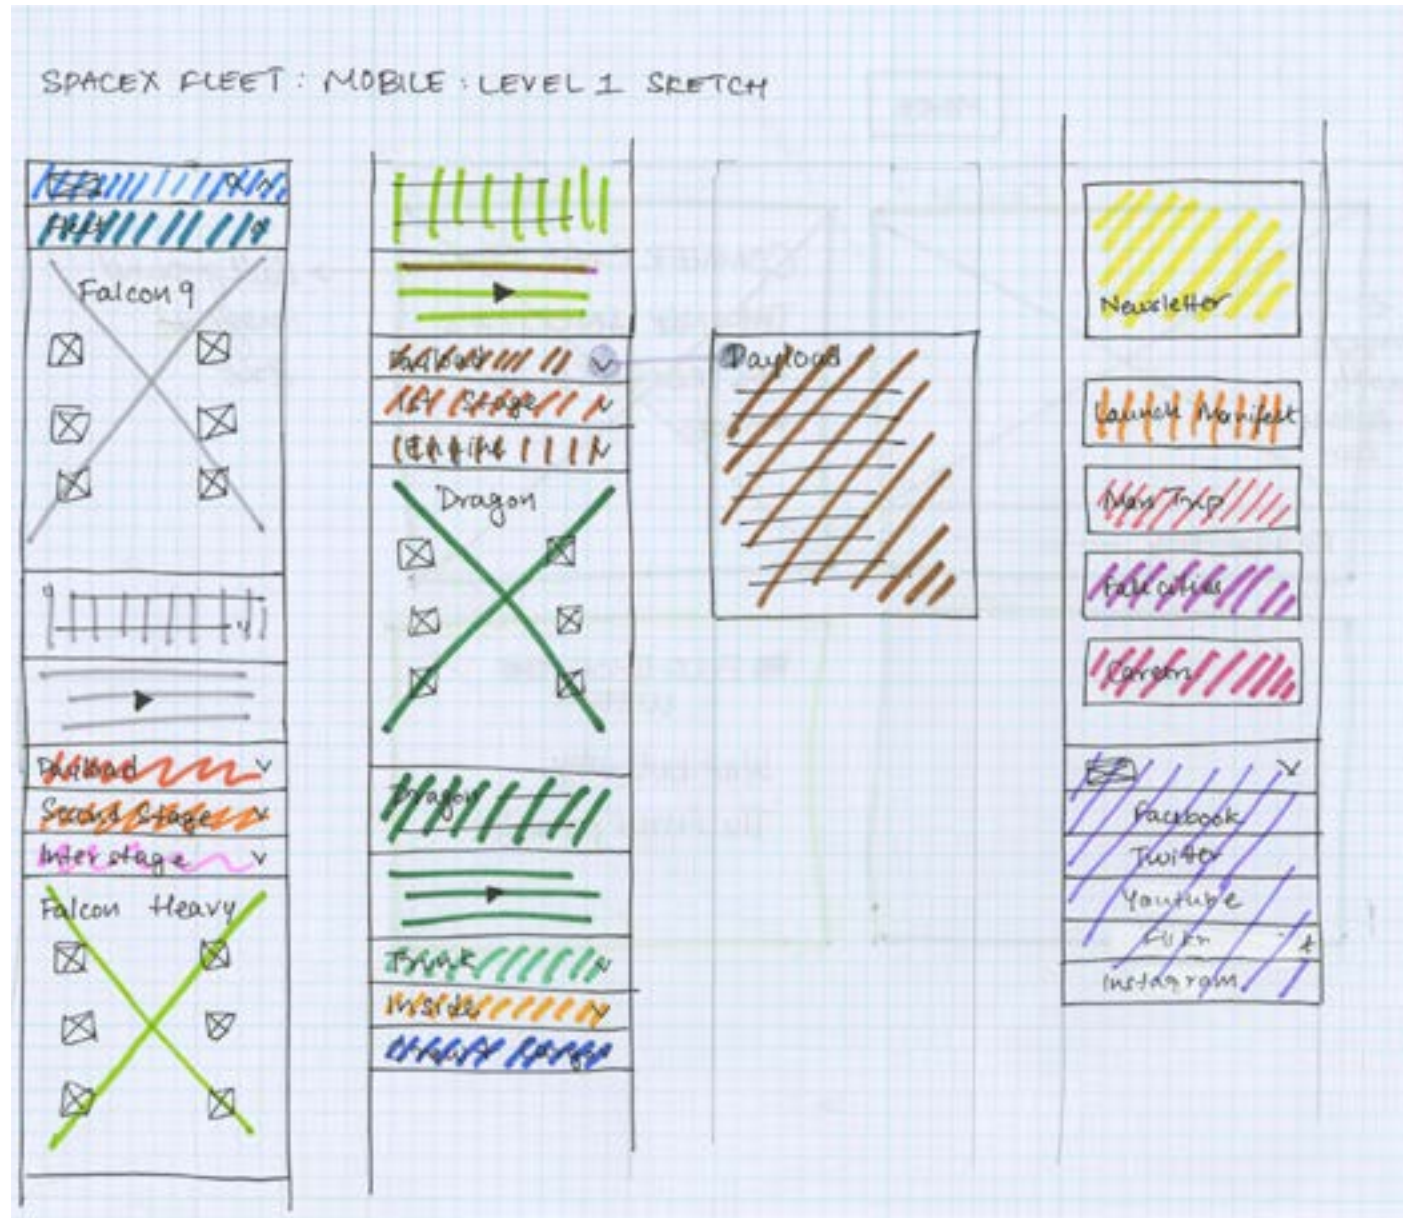 SPACEX FLEET : MOBILE : LEVEL 1 SKETCH
Falcon 9
Payload
Second Stage
Interstage
Falcon Heavy
Payload
1st Stage
Engine
Dragon
Dragon
Trunk
Inside
Payload
Newsletter
Launch Manifest
Mars Trip
Facilities
Careers
Facebook
Twitter
Youtube
Flikr
Instagram